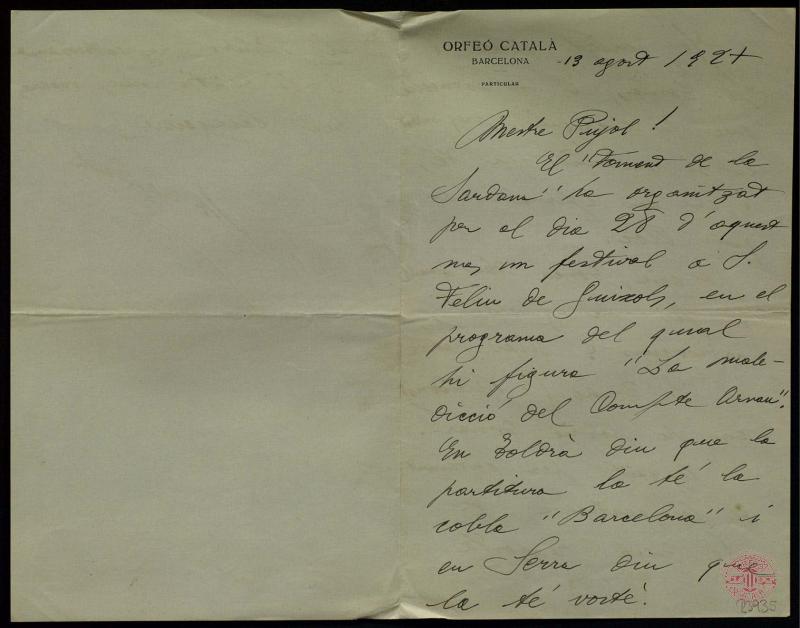 ORFEÓ CATALÀ
BARCELONA
PARTICULAR
-13 agost 1927
Mestre Pujol!
El "Foment de la
Sardana" ha organitzat
per el dia 28 d'aquest
mes un festival a S.
Feliu de Guixols, en el
programa del qual
hi figura "La male-
dicció del Compte Arnau".
En Toldrà diu que la
partitura la té la
cobla "Barcelona" i
en Serra diu que
la té vostè.